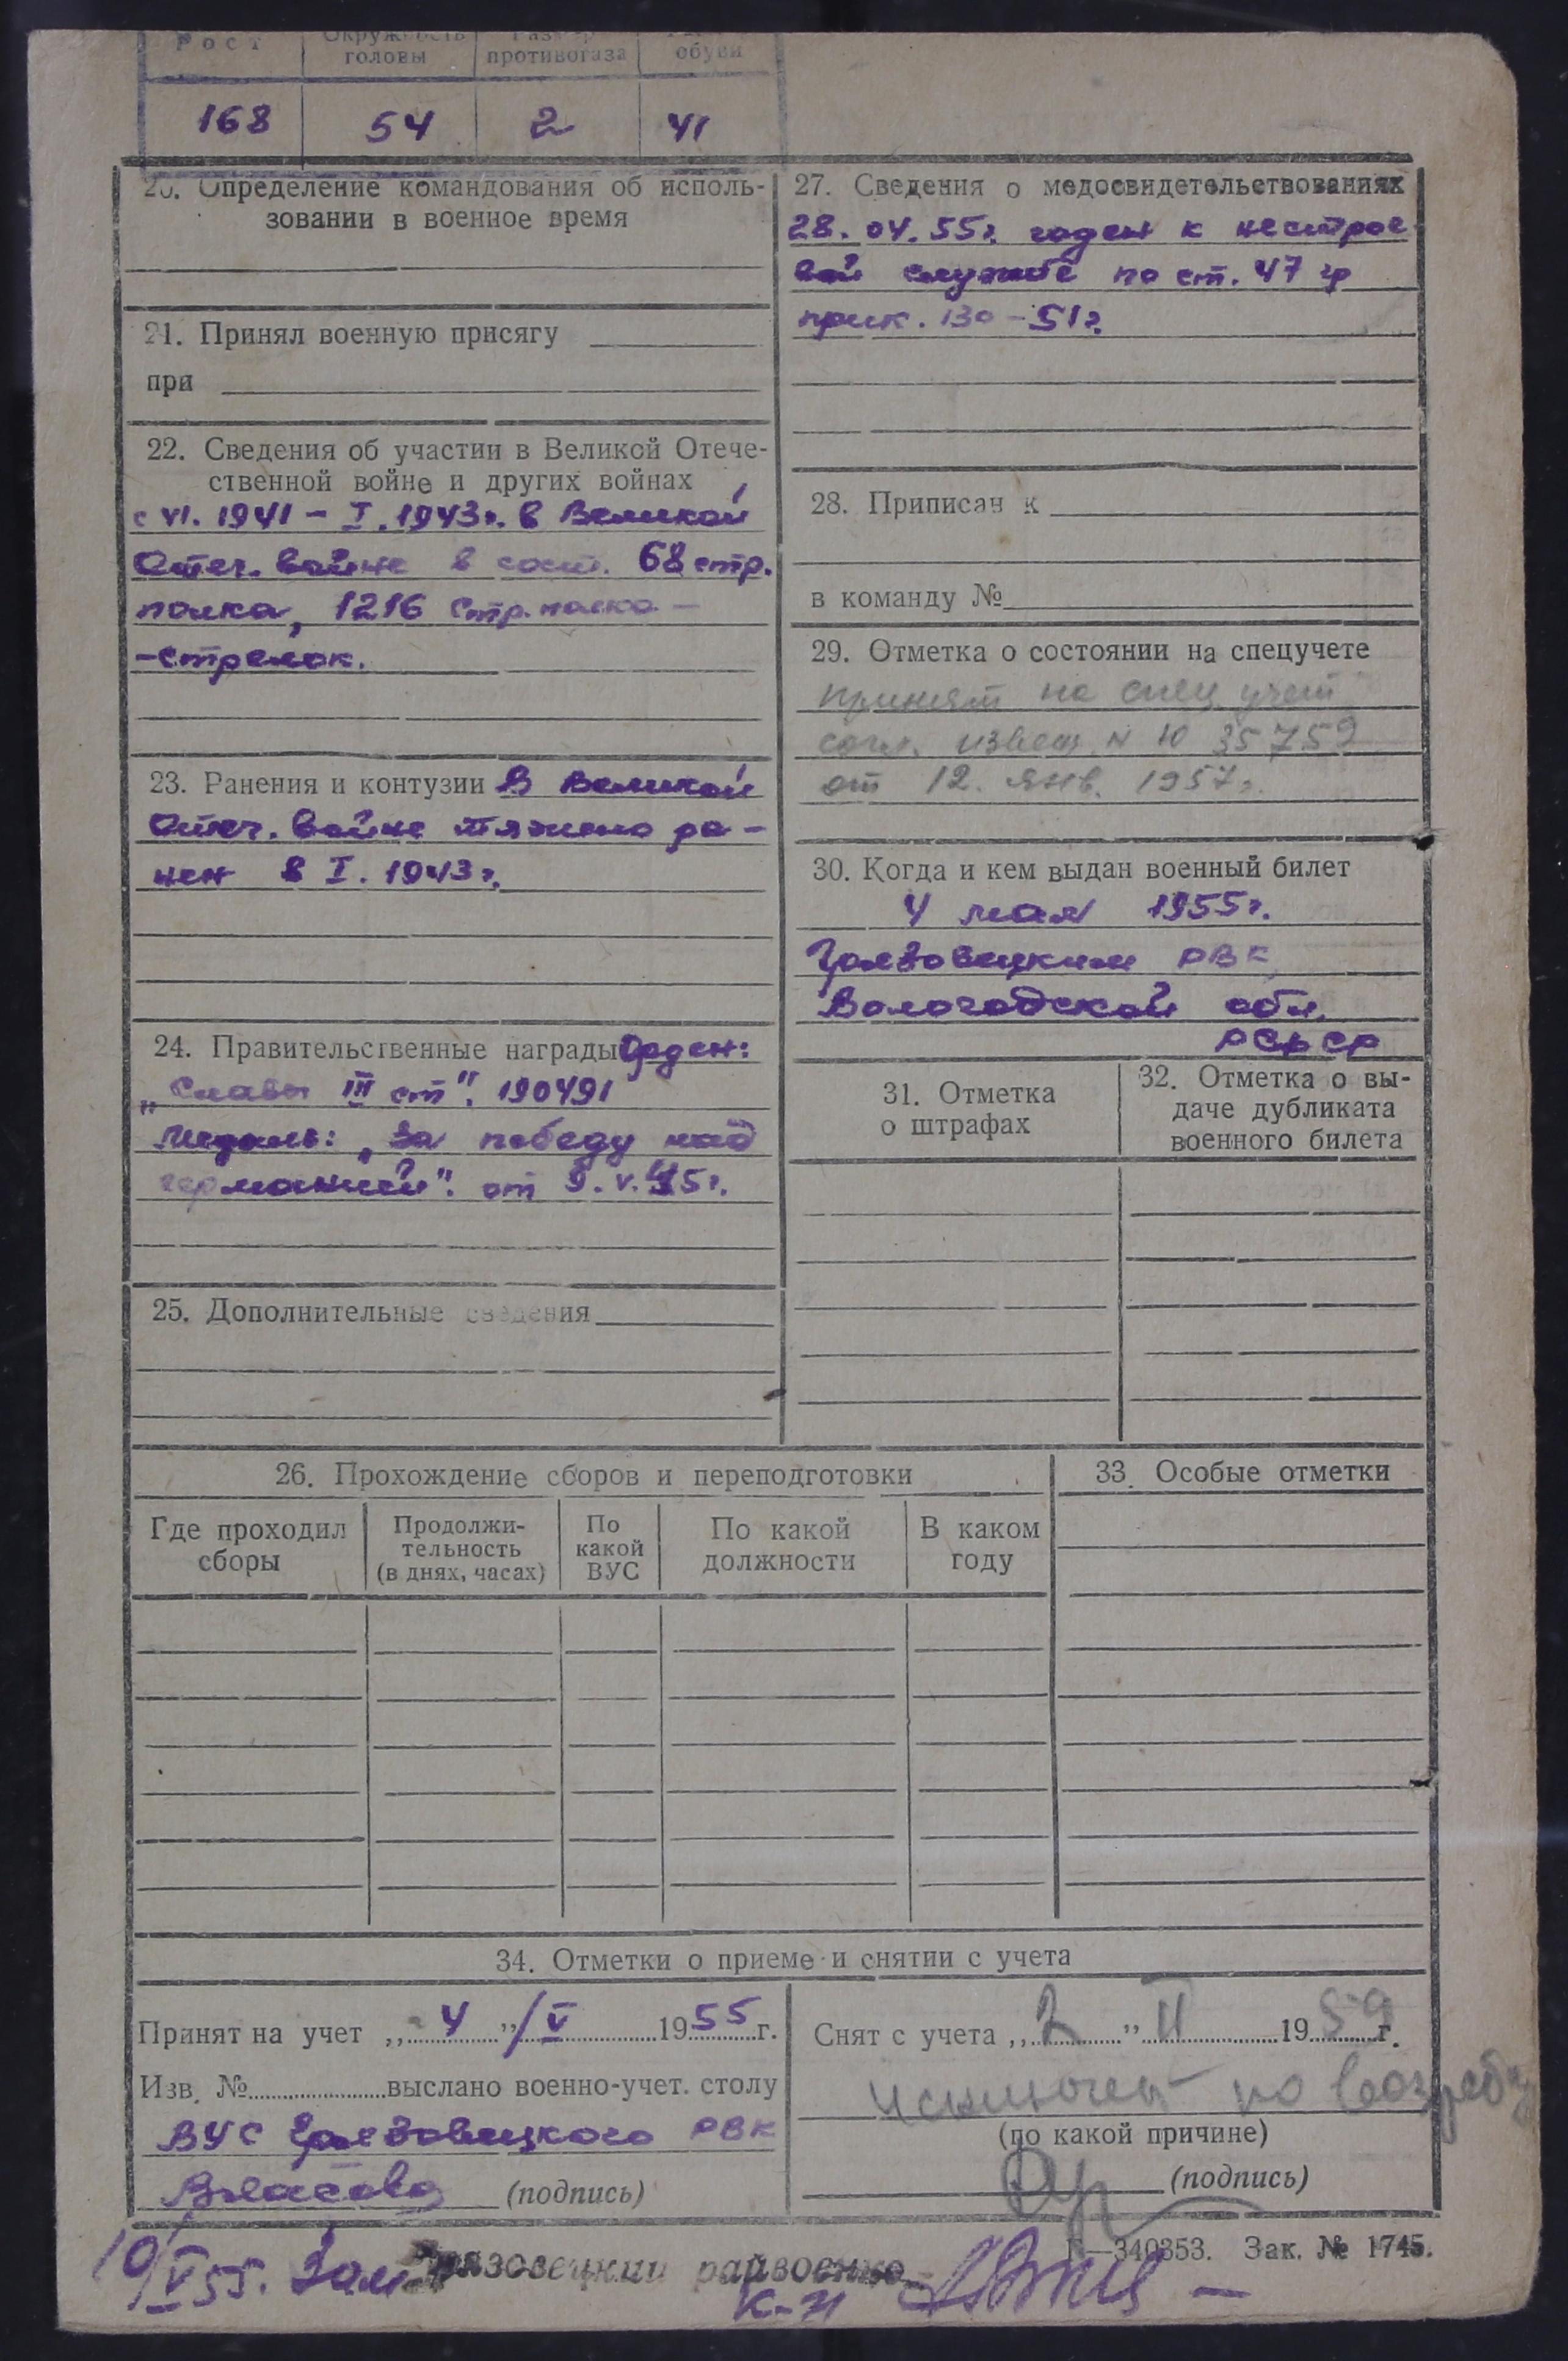 Рост
Окружность головы
Размер противогаза
обуви
168
54
2
41
20. Определение командования об исполь-
зовании в военное время
21. Принял военную присягу
при
22. Сведения об участии в Великой Отече-
ственной войне и других войнах
с VI. 1941 – I. 1943г. в Великой
Отеч. войне в сост. 68 стр.
полка, 1216 стр. полка –
– стрелок.
23. Ранения и контузии В Великой
Отеч. войне тяжело ра-
нен в I. 1943г.
24. Правительственные награды Орден:
„Славы III ст". 190491
Медаль: „За победу над
германией". от 9.V.45г.
25. Дополнительные сведения
27. Сведения о медосвидетельствованиях
28. 04. 55г. годен к нестрое-
вой службе по ст. 47 гр
прик. 130 – 51г.
28. Приписан к
в команду №
29. Отметка о состоянии на спецучете
принят на спец. учет
согл. извещ. N Ю 35759
от 12. янв. 1957г.
30. Когда и кем выдан военный билет
4 мая 1955г.
Грязовецким РВК
Вологодской обл.
РСФСР
31. Отметка
о штрафах
32. Отметка о вы-
даче дубликата
военного билета
26. Прохождение сборов и переподготовки
33. Особые отметки
Где проходил
сборы
Продолжи-
тельность
(в днях, часах)
По
какой
ВУС
По какой
должности
В каком
году
34. Отметки о приеме и снятии с учета
Принят на учет „ 4 " / V 1955 г.
Изв. № выслано военно-учет. столу
ВУС Грязовецкого РВК
Власова (подпись)
Снят с учета „ 2 " II 1959 г.
исключен по возрасту
(по какой причине)
(подпись)
Г—340353. Зак. № 1745.
10/V 55. Зам. Грязовецкий райвоенко